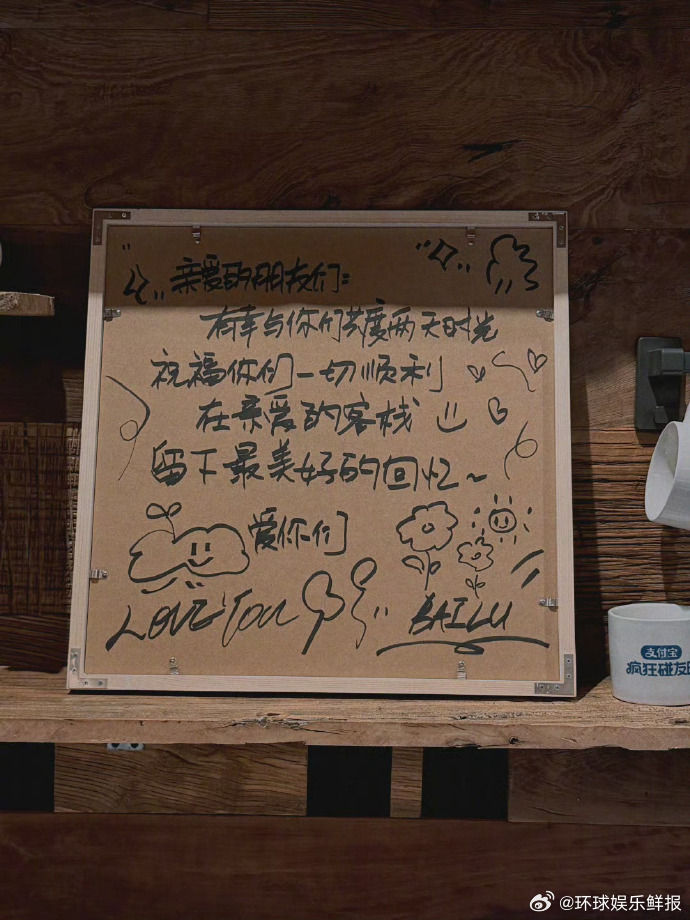 亲爱的朋友们:
有幸与你们共度两天时光
祝福你们一切顺利
在亲爱的客栈
留下最美好的回忆~
爱你们
LOVE You
BAILU
支付宝
疯狂碰友
@环球娱乐鲜报